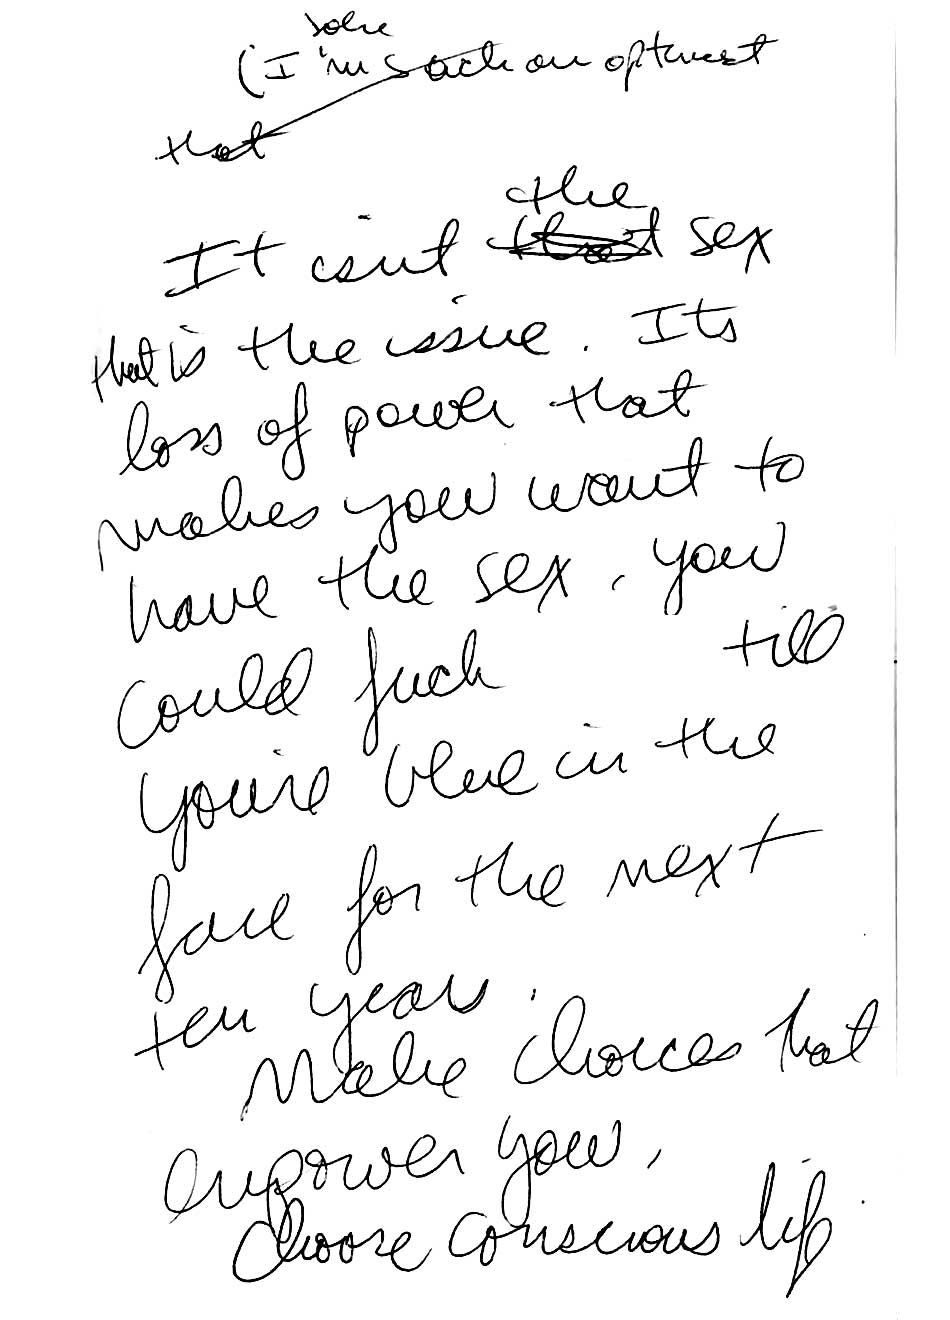 (I'm such an optimist
that
the
It isn't that sex
that is the issue. Its
loss of power that
makes you want to
have the sex, you
could fuck till
you're blue in the
face for the next
ten years.
Make choices that
enpower you,
Choose conscious life